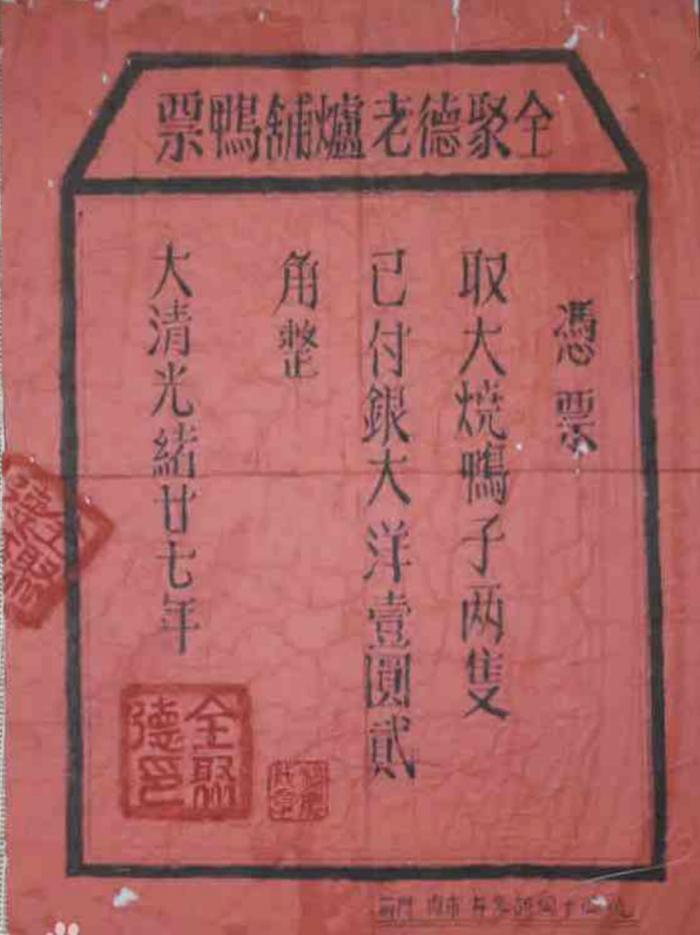 全聚德老爐舖鴨票
憑票
取大烧鴨子两隻
已付銀大洋壹圓貳
角整
大清光緒廿七年
全聚
德印